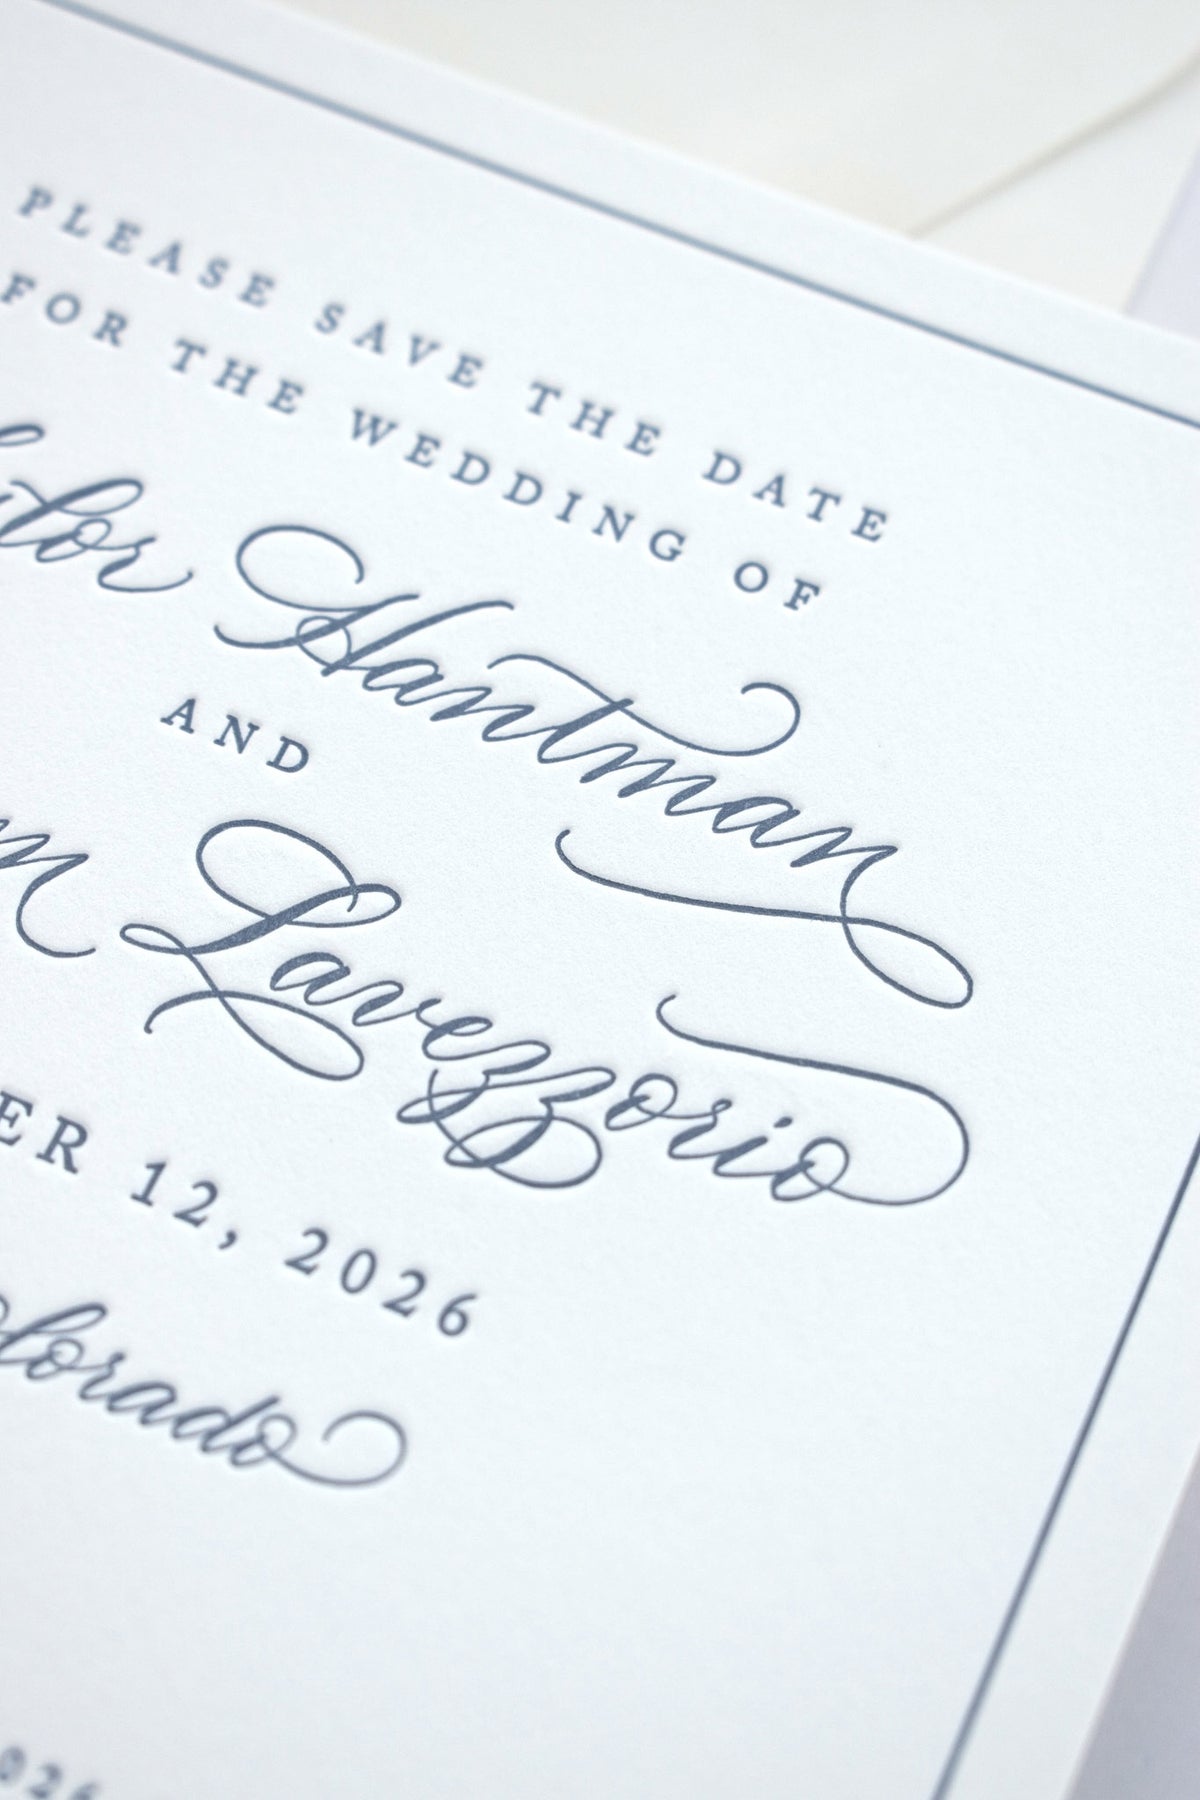 PLEASE SAVE THE DATE
FOR THE WEDDING OF
Hantman
AND
Lavezzorio
ER 12, 2026
olorado
026